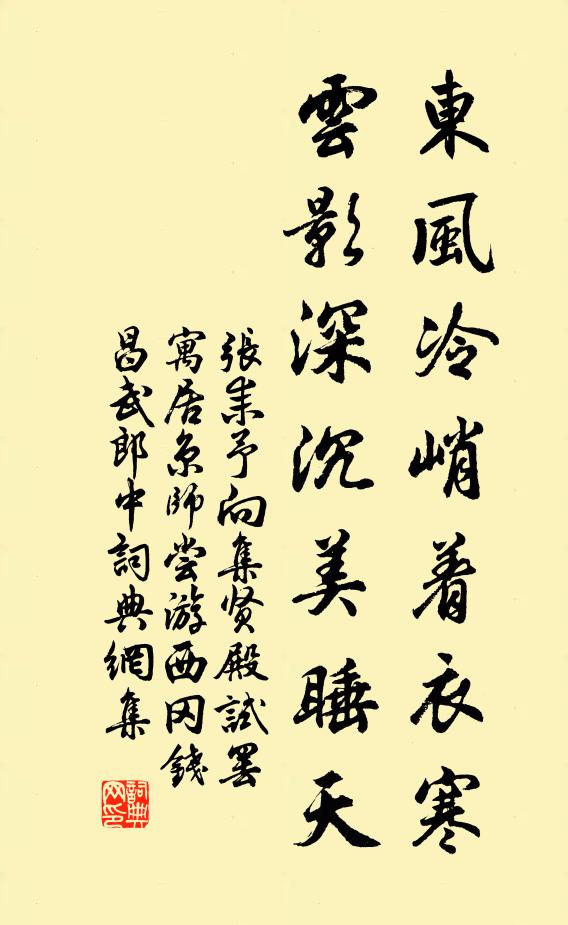 東風冷峭着衣寒
雲影深沉美睡天
張耒予向集贤殿試罢
寓居京師尝游西冈錢
昌武郎中詞典網集
詞典网印